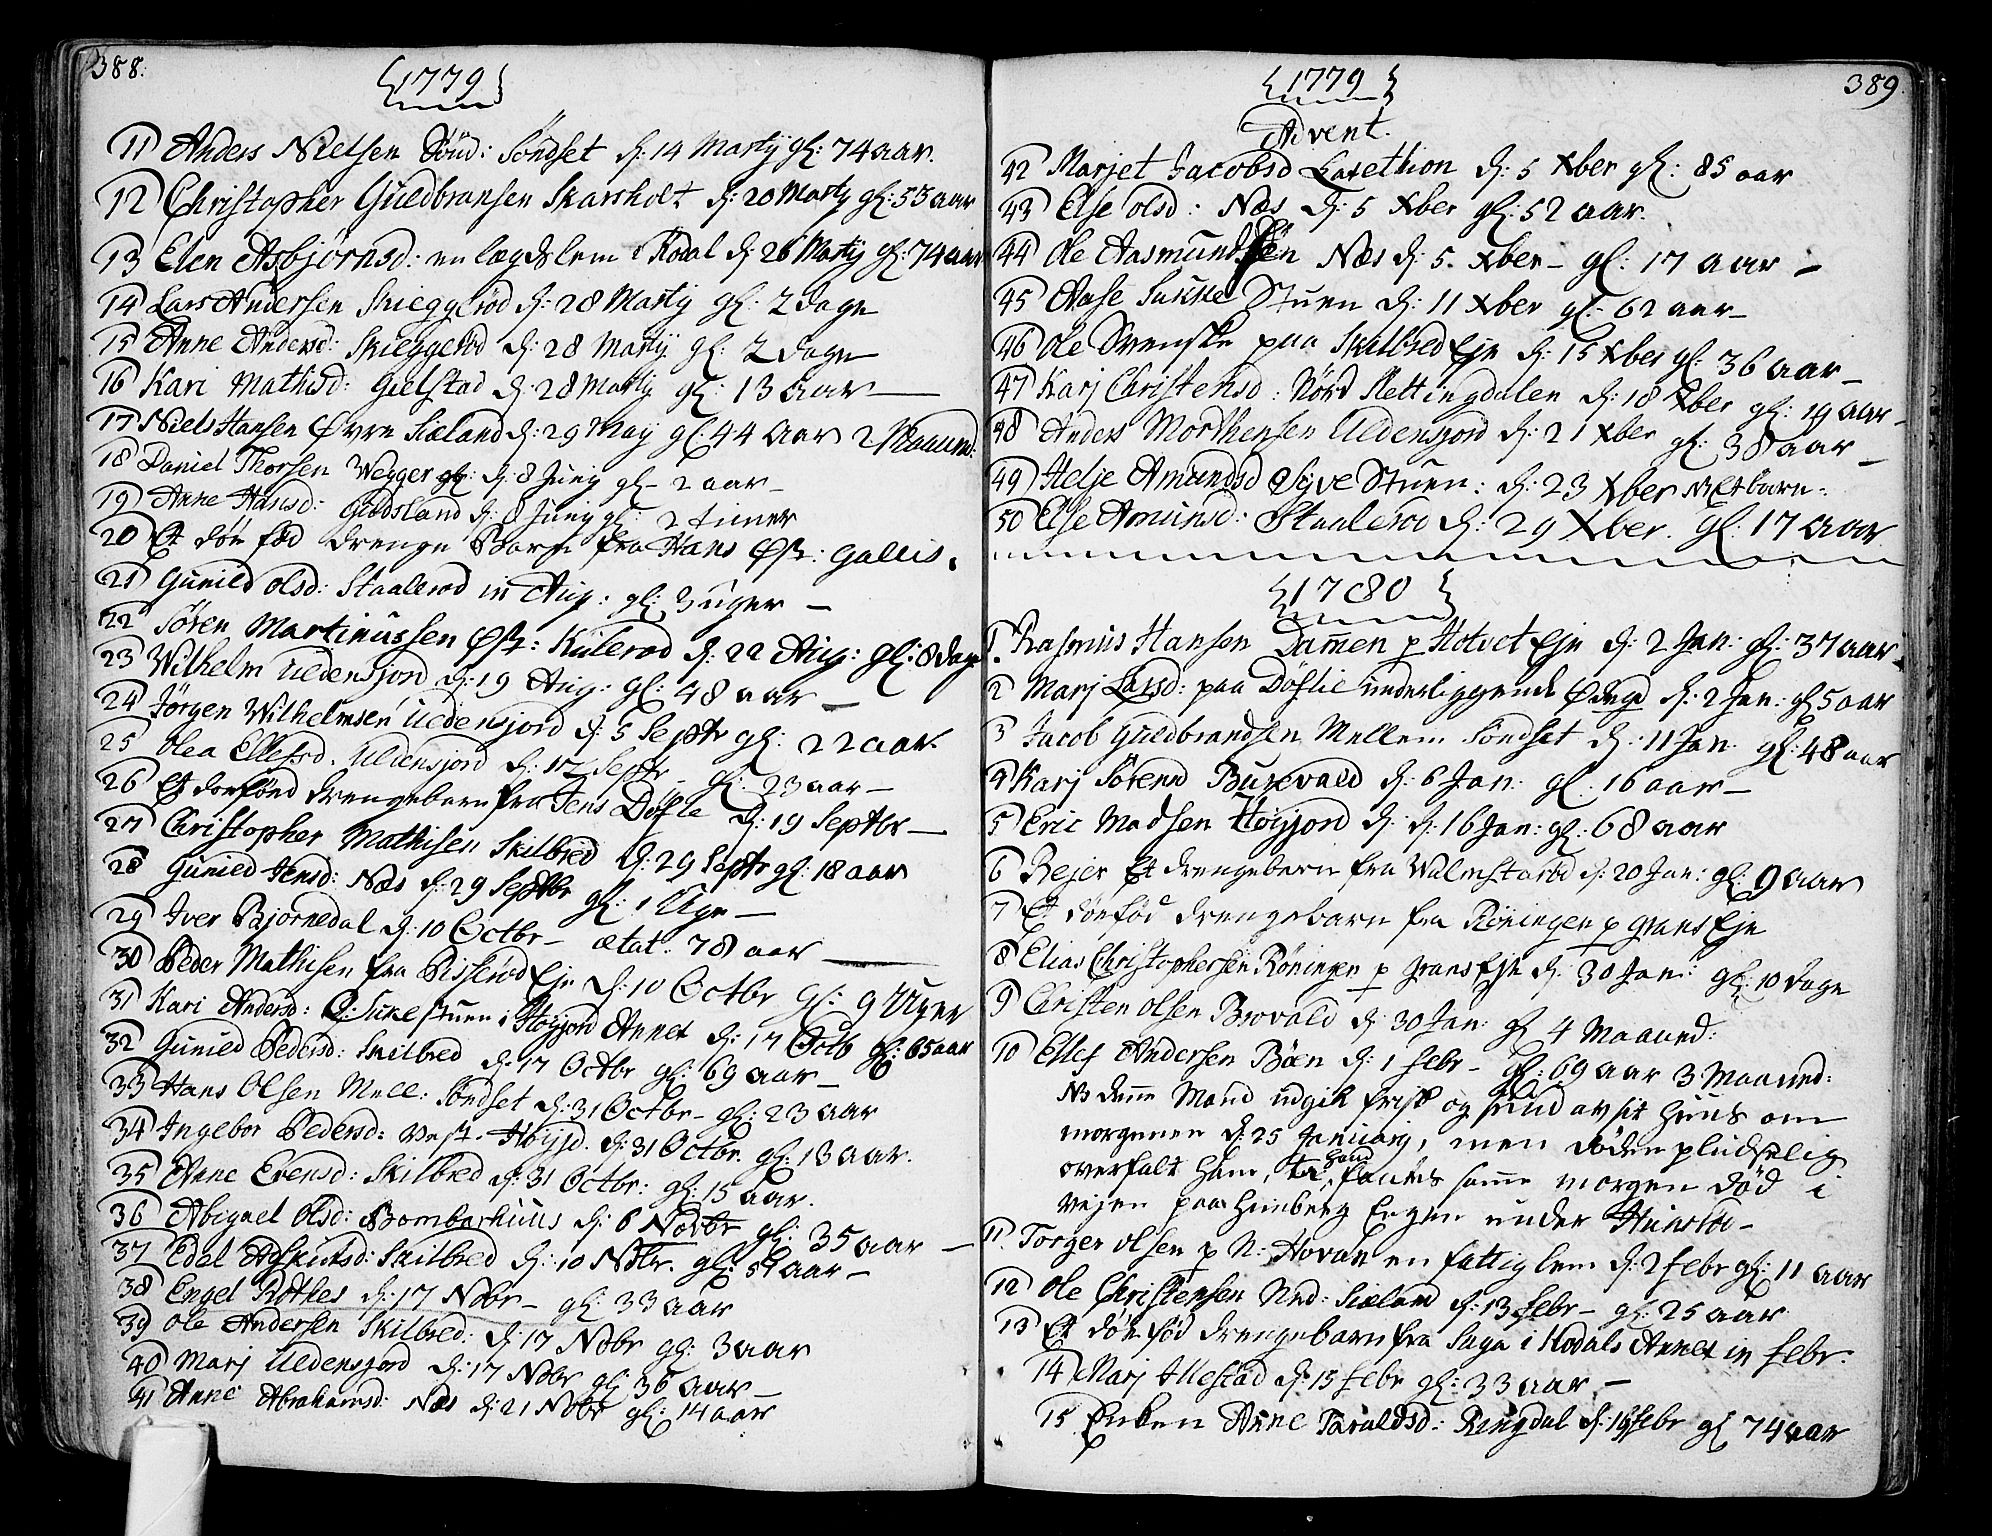 388.
1779
11 Anders Nielsen Sönd: Söndset d: 14 Martj gl: 74 aar.
12 Christopher Guldbransen Skarsholt d: 20 Martj gl: 55 aar
13 Elen Asbjörnsd: en lægdslem i Kodal d: 26 Martj gl: 74 aar
14 Lars Andersen Skieggeröd d: 28 Martj gl: 2 dage
15 Anne Andersd: Skieggeröd d: 28 Martj gl: 2 dage
16 Kari Mathisd: Gielstad d: 28 Martj gl: 13 Aar
17 Niels Hansen Øvre Siæland d: 29 Maj gl: 44 Aar 2 Maaned:
18 Daniel Thorsen Wegger d: 8 Junj gl- 2 aar-
19 Anne Hansd: Gidsland d: 8 Junj gl: 2 timer
20 Et död fød drenge Barn fra Hans Øst: Gallis.
21 Gunild olsd: Staalerød in Aug: gl: 3 uger -
22 Sören Martinussen Øst: Kulerød d: 22 Aug: gl: 8 dage
23 Wilhelm Uldensjord d: 19 Aug: gl: 48 aar -
24 Jörgen Wilhelmsen Uldensjord d: 5 Septr gl: 22 aar.
25 Olea Ellefsd. Uldensjord d: 12 Septr- gl: 23 aar-
26 Et dødfönd drengebarn fra Jens Döfle d: 19 Septbr-
27 Christopher Mathisen Skilbred d: 29 Septr gl: 18 aar
28 Gunild Jensd: Næs d: 29 Septbr gl: 1 Uge-
29 Iver Bjørnedal d: 10 Octbr- ætat: 78 aar
30 Peder Mathisen fra Pisserød Eje d: 10 Octbr gl: 9 Uger
31 Kari Andersd: Suke stuen i Høijord Annex d: 17 Octb gl: 65 aar
32 Gunild Pedersd: Skilbred d: 17 Octbr gl: 69 aar-
33 Hans Olsen Mell: Söndset d: 31 Octbr- gl: 23 aar
34 Ingebor Pedersd: Vest. Høijd. d: 31 Octbr. gl: 13 aar.
35 Anne Evensd: Skilbred d: 31 Octbr: gl: 15 aar.
36 Abigael Olsd: Bomberhuus d: 8 Novbr gl: 35 aar -
37 Edel Skilbred d: 10 Nobr. gl: aar-
38 Engel Rothes d: 17 Nobr- gl: 33 aar
39 Ole Andersen Skilbred: d: 17 Nobr gl: 3 aar
40 Marj Uldensjord d: 17 Nobr gl: 36 aar-
41 Anne Abrahamsd: Næs d: 21 Nobr gl: 14 aar
389.
1779
Advent.
42 Marjet Jacobsd d: 5 Xber gl: 85 aar
43 Else olsd: Næs d: 5 Xber gl: 52 aar.
44 Ole Aasmundsen Næs d: 5. Xber- gl: 17 aar-
45 Aase Sukke Stuen d: 11 Xber gl- 62 aar-
46 Ole Svenske paa Skilbred Eje d: 15 Xber gl: 36 aar-
47 Karj Christensd: Nörd Slettingdalen d: 18 Xber gl: 19 aar-
48 Anders Morthensen Uldensjord d: 21 Xber gl: 38 aar-
49 Helje Amundsd Syve Stuen: d: 23 Xber barn:
50 Else Amunsd: Staalerød d: 29 Xber. gl: 17 aar
1780
1. Rasmus Hansen Damen p Hotvet Eje d: 2 Jan: gl: 37 aar
2 Marj Larsd: paa Döflie underliggende d: 2 Jan: gl 5 aar
3 Jacob Guldbrandsen Mellem Söndset d: 11 Jan. gl: 48 aar
4 Karj Sörensd Buxevald d: 6 Jan: gl. 16 aar-
5 Eric Madsen Høijord d: d: 16 Jan: gl: 68 aar
6 Rejer Et drengebarn fra Walmstaröd d: 20 Jan: gl: 9 aar
7 Et dönföd drengebarn fra Röningen p grans Eje
8 Elias Christophersen Röningen p grans Eje d: 30 Jan: gl: 10 dage
9 Christen olsen Brovald d: 30 Jan: gl 4 Maaned:
10 Ellef Andersen Böen d: 1 febr- gl: 69 aar 3 Maaned:
NB denne Mand udgik frisk og sund av sit huus om
morgenen d: 25 Januarij, men döden pludselig
overfalt ham, ta hand fantes samme morgen död i
vejen paa Himberg Engen under
11. Torger olsen p N: Hovan en fattig lem d: 2 febr gl: 11 aar
12 Ole Christensen Ned: Siæland d: 13 febr- gl: 25 aar
13 Et dön föd drengebarn fra Saga i Kodals Annex in febr.
14 Marj Allestad d: 15 febr gl: 33 aar-
15 Enken Anne Taraldsd: Ringdal d: 16 febr gl 74 aar